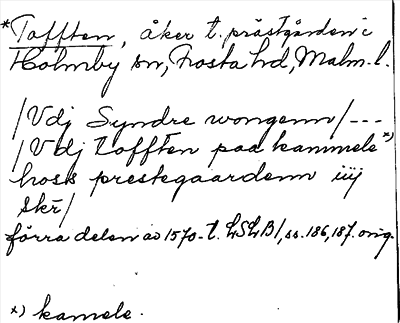 *Tofften, åker t. prästgården i
Holmby sn, Frosta hd, Malm. l.
/Vdj Syndre wongenn/---
/Vdj tofften paa kammele*)
hoss prestegaardenn iiij
skr/
förra delen av 1570-t. LSLB/, ss. 186, 187. orig.
*) kamele.